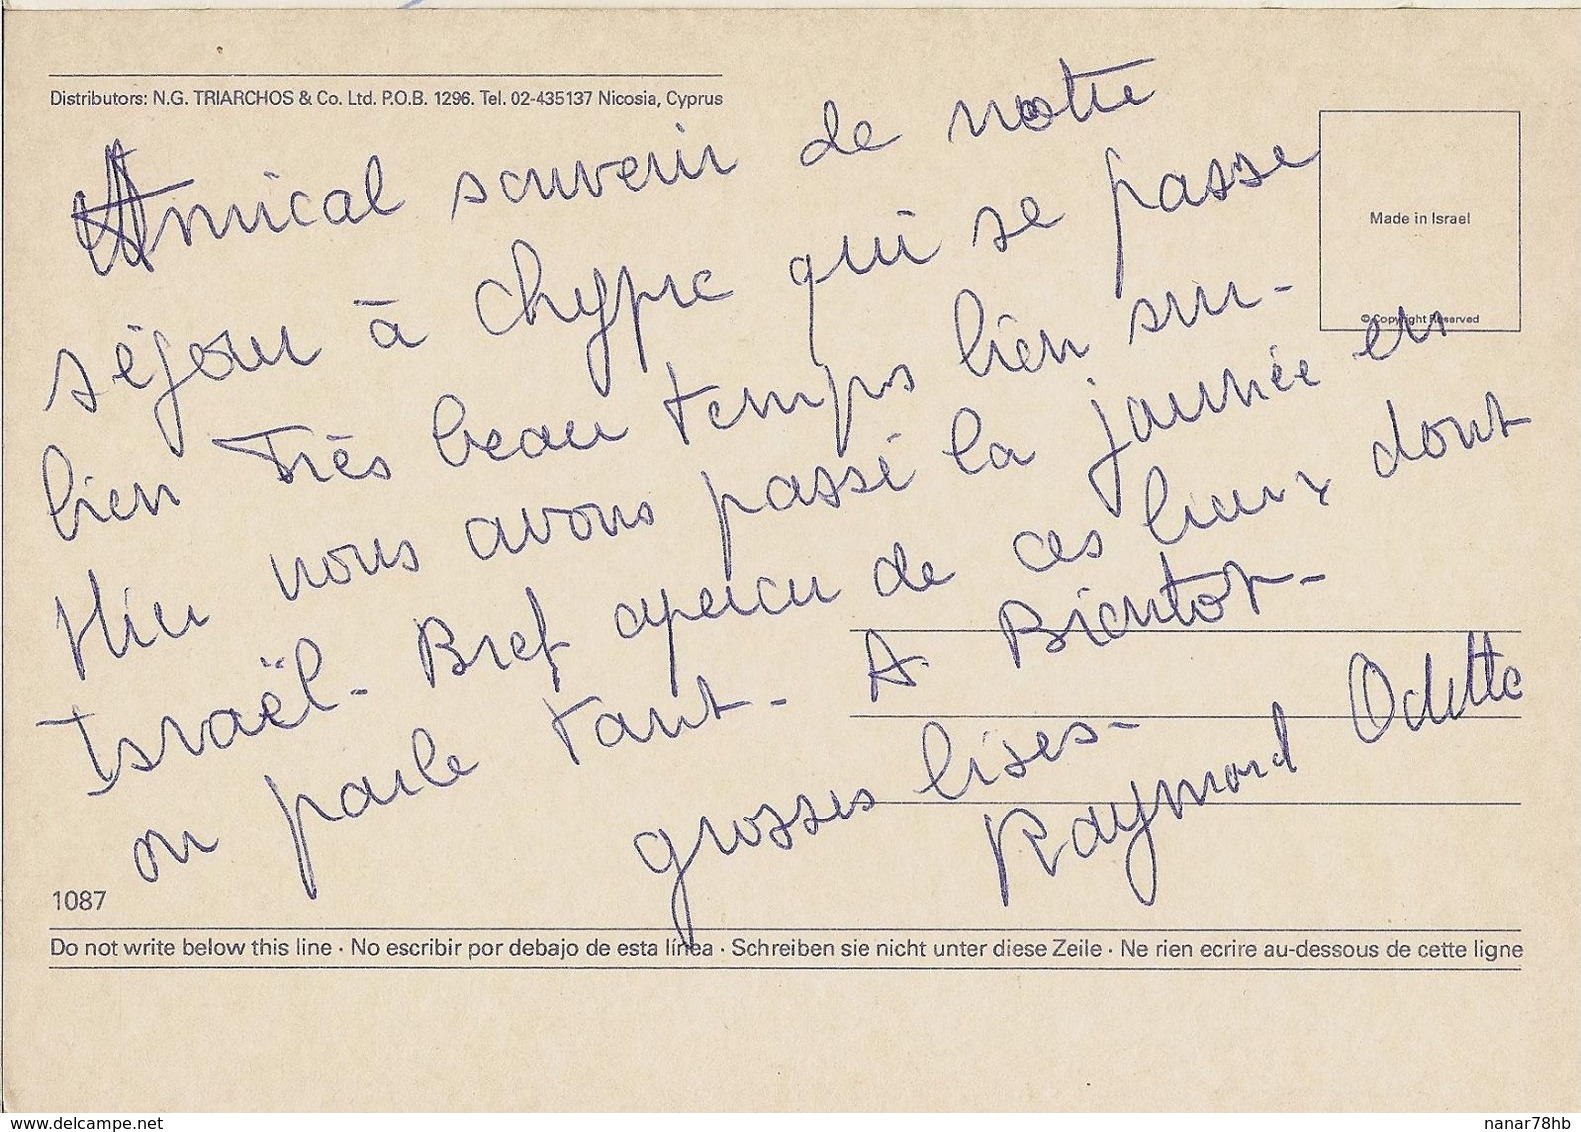 Distributors: N.G. TRIARCHOS & Co. Ltd. P.O.B. 1296. Tel. 02-435137 Nicosia, Cyprus
Amical souvenir de notre
séjour à Chypre qui se passe
bien Très beau temps bien sur-
Hier nous avons passé la journée en
Israël- Bref apercu de ces lieux dont
on parle tant- A Bientot-
grosses bises-
Raymond Odette
Made in Israel
© Copyright Reserved
1087
Do not write below this line · No escribir por debajo de esta línea · Schreiben sie nicht unter diese Zeile · Ne rien ecrire au-dessous de cette ligne
www.delcampe.net
nanar78hb